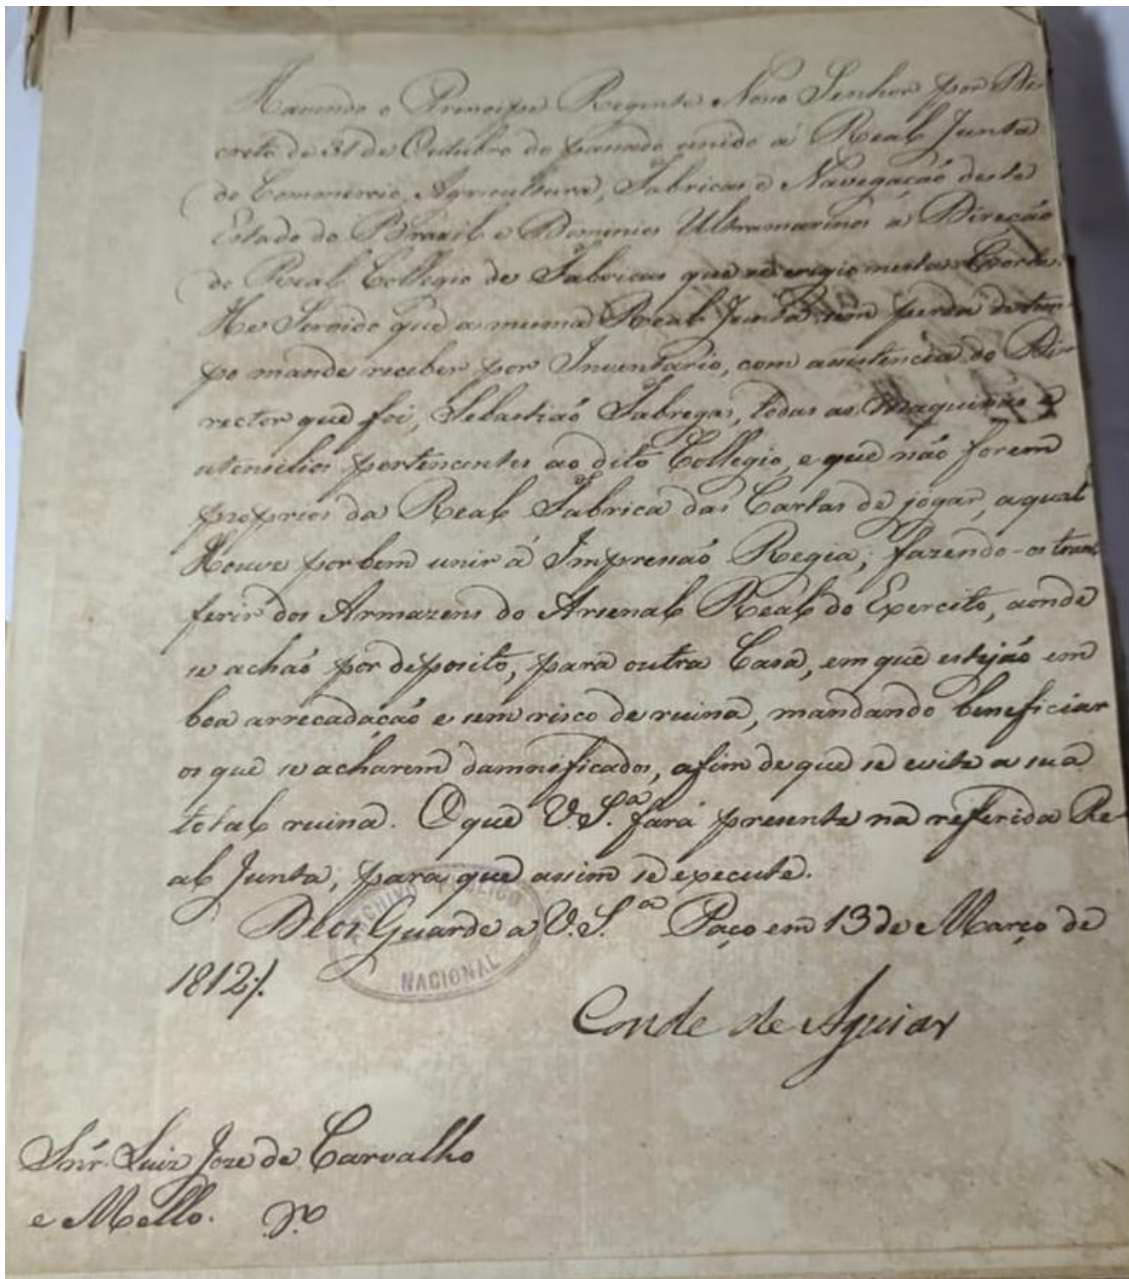 Havendo o Principe Regente Nosso Senhor por De-
creto de 31 de Outubro do passado unido á Real Junta
do Commercio, Agricultura, Fabricas e Navegação deste
Estado do Brazil e Dominios Ultramarinos a Direção
do Real Collegio de Fabricas que se erigio nesta Corte:
He Servido que a mesma Real Junta sem perda de tem-
po mande receber por Inventario, com assistencia do Di-
rector que foi, Sebastião Fabregas, todas as Maquinas e
utensilios pertencentes ao dito Collegio, e que não forem
proprios da Real Fabrica das Cartas de jogar, a qual
Houve por bem unir á Impressaõ Regia; fazendo-os trans-
ferir dos Armazens do Arsenal Real do Exercito, aonde
se achaõ por deposito, para outra Casa, em que estejaõ em
boa arrecadaçaõ e sem risco de ruina, mandando beneficiar
os que se acharem damnificados, afim de que se evite a sua
total ruina. O que V. S.ª fará presente na referida Re-
al Junta, para que assim se execute.
Deos Guarde a V. S.ª Paço em 13 de Março de
1812./.
Conde de Aguiar
Snr. Luiz Joze de Carvalho
e Mello.
ARCHIVO PUBLICO
NACIONAL